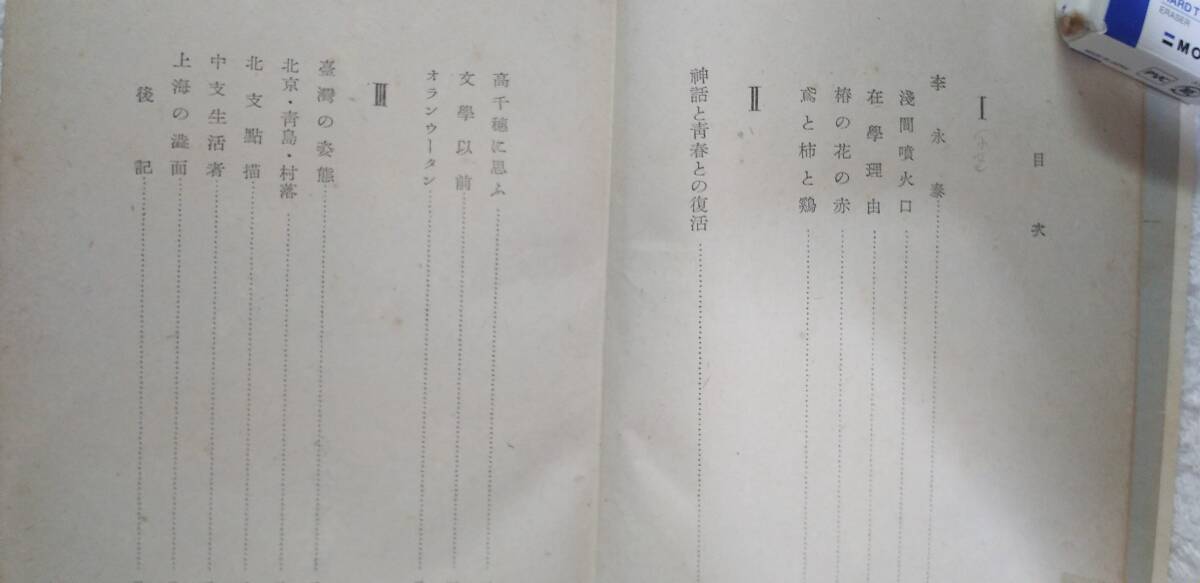 目次
I
李永泰
淺間噴火口
在學理由
椿の花の赤
鳶と柿と鷄
II
神話と靑春との復活
高千穗に思ふ
文學以前
オランウータン
III
臺灣の姿態
北京・靑島・村落
北支點描
中支生活者
上海の澁面
後記
ERASER
MO
PVC